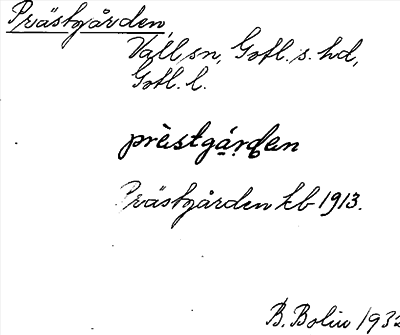 Prästgården,
Vall sn, Gotl. s. hd,
Gotl. l.
prèstgạ́rđen
Prästgården kb 1913.
B. Bolin 1932